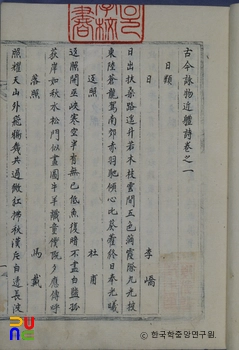 古今詠物近體詩卷之一
日類
日 李嶠
日出扶桑路遙升若木枝雲間五色滿霞際九光披
東陸蒼龍駕南郊赤羽馳傾心比葵藿終日奉光曦
返照 杜甫
返照開巫峽寒空半有無已低魚復暗不盡白鹽孤
荻岸如秋水松門似畫圖牛羊識童僕既夕應傳呼
落照 馬戴
照耀天山外飛鴉幾共過微紅拂秋漢片白透長波
ⓒ 한국학중앙연구원